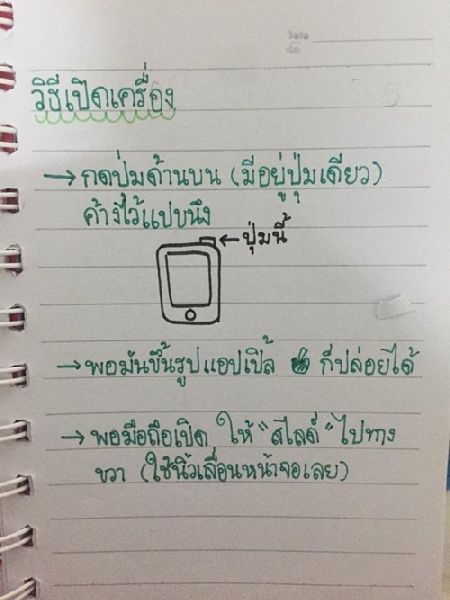 วิธีเปิดเครื่อง
→ กดปุ่มด้านบน (มีอยู่ปุ่มเดียว)
ค้างไว้แปบนึง
← ปุ่มนี้
→ พอมันขึ้นรูปแอปเปิ้ล ก็ปล่อยได้
→ พอมือถือเปิด ให้ "สไลด์" ไปทาง
ขวา (ใช้นิ้วเลื่อนหน้าจอเลย)